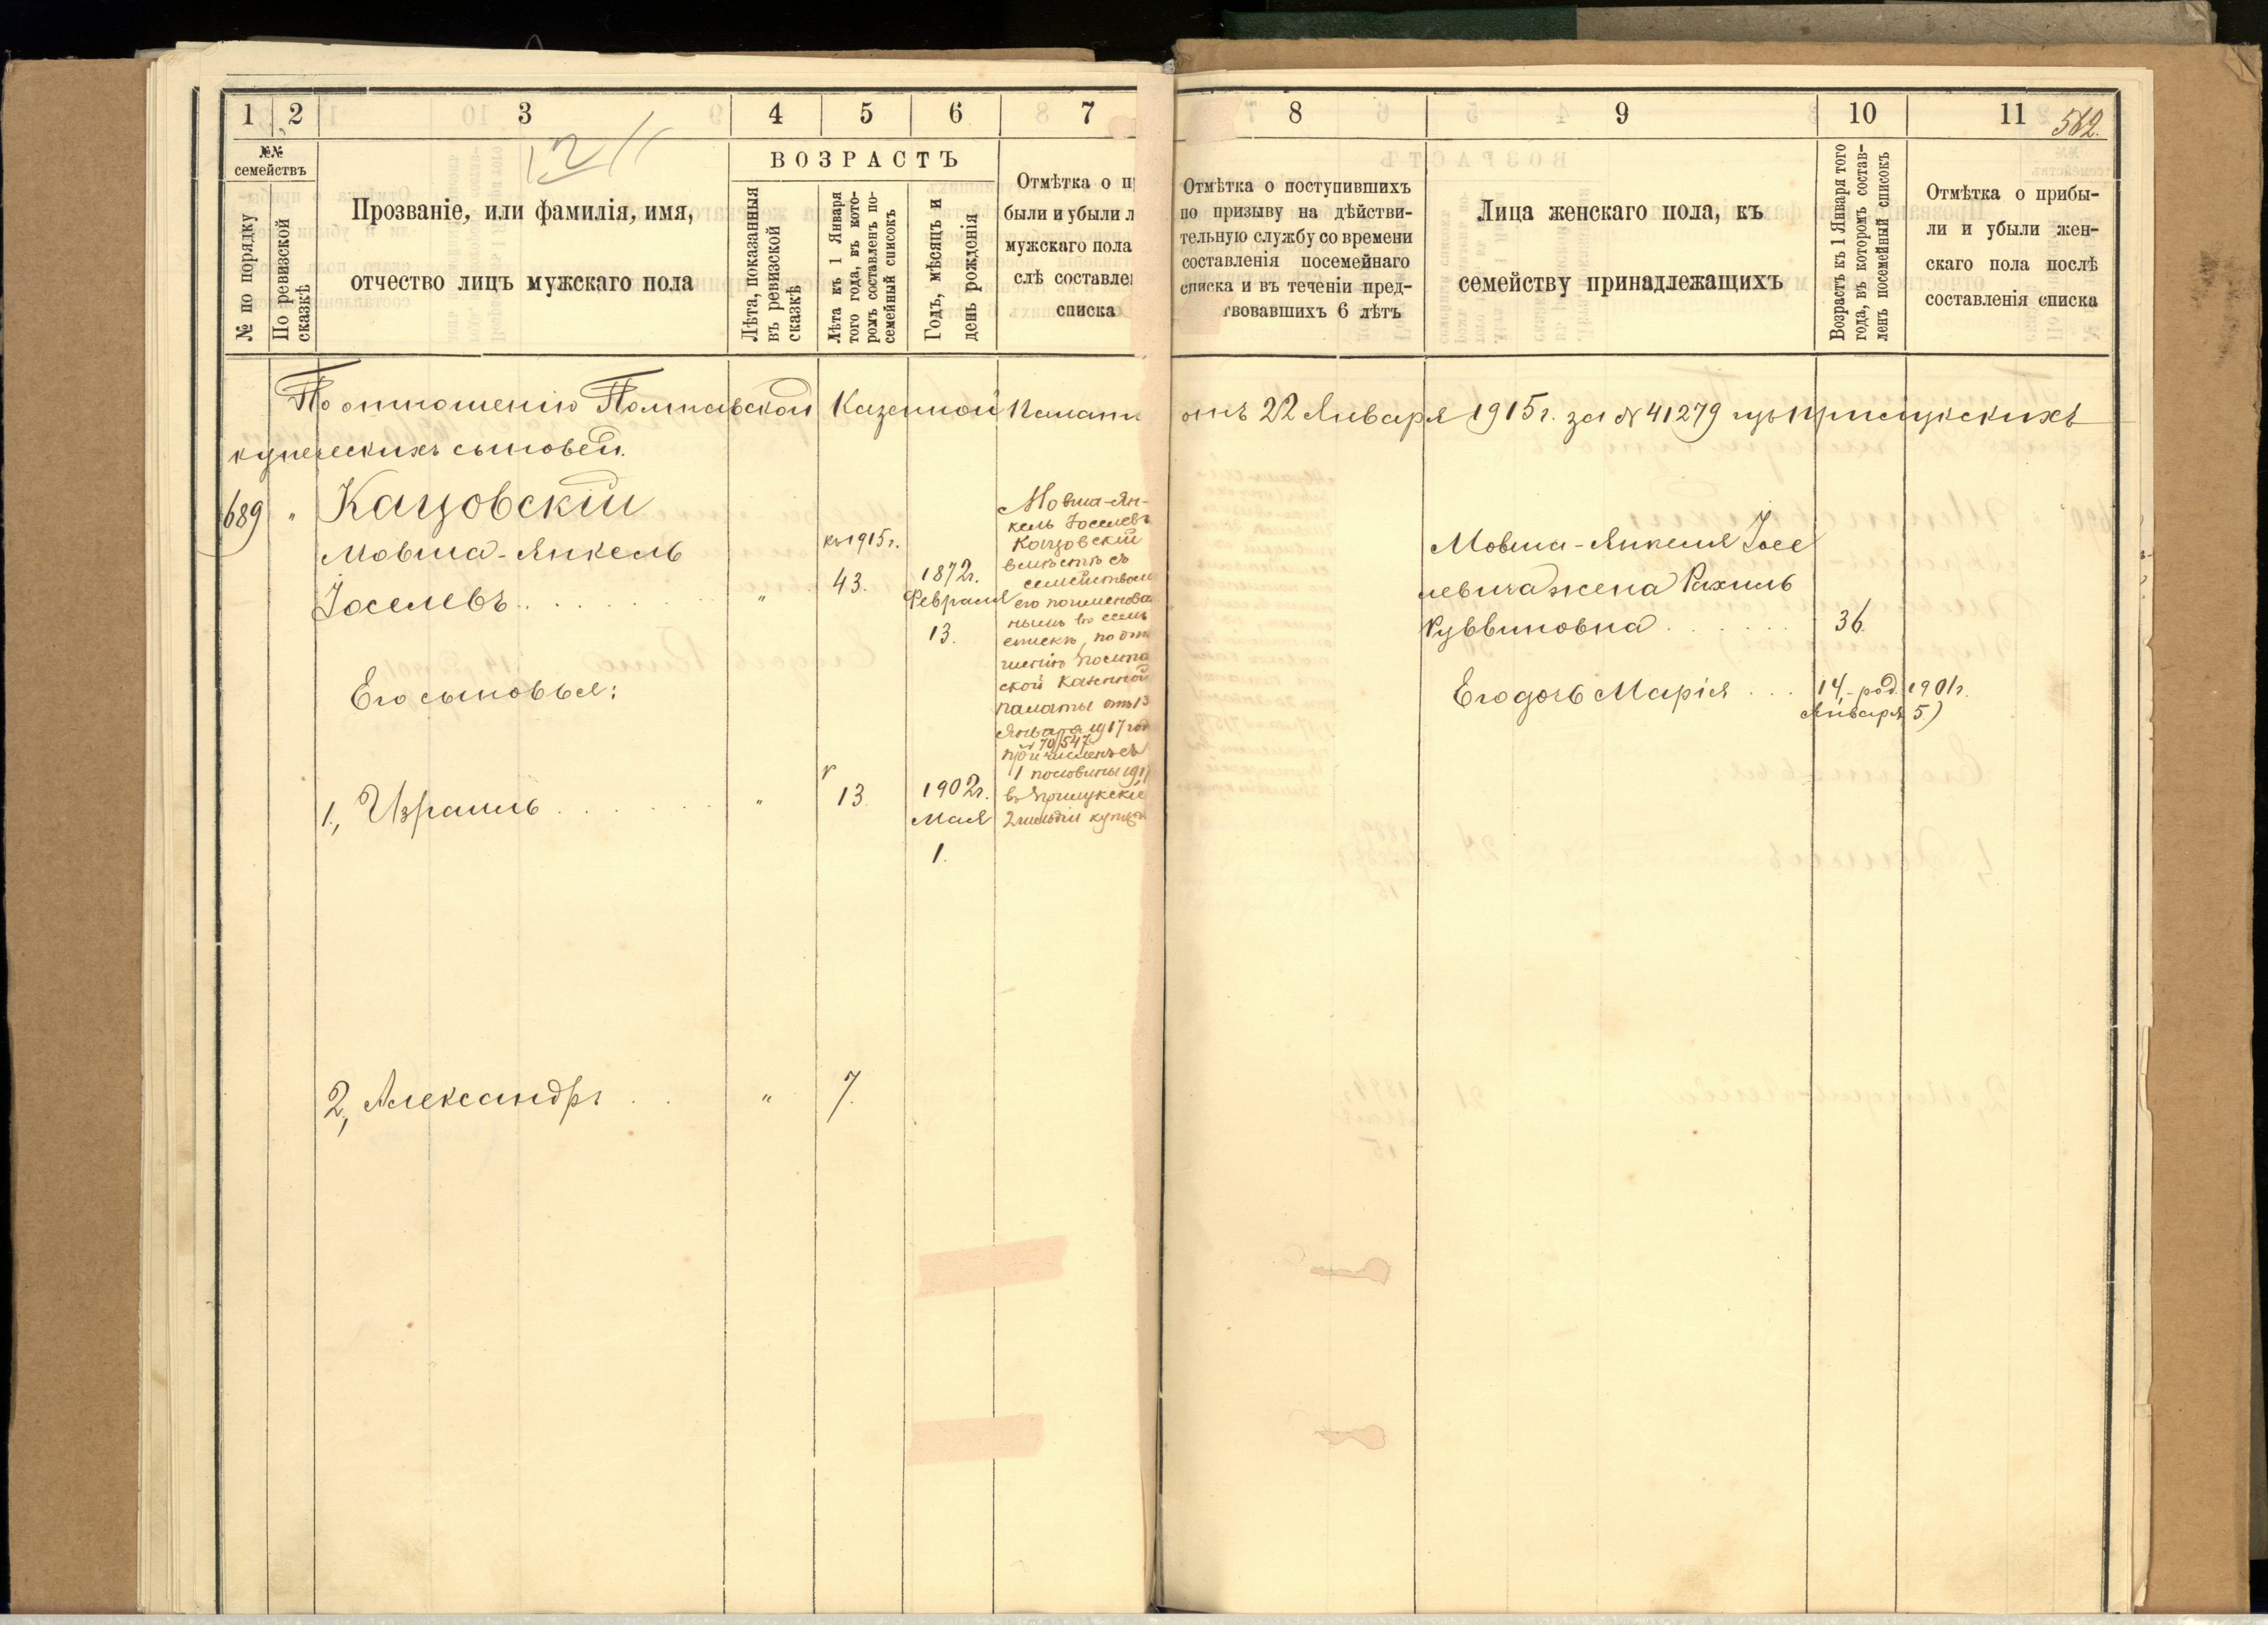 1 2 3 4 5 6 7
№№ семействъ
№ по порядку
По ревизской сказкѣ
Прозваніе, или фамилія, имя,
отчество лицъ мужскаго пола
ВОЗРАСТЪ
Лѣта, показанныя
въ ревизской
сказкѣ
Лѣта къ 1 Января
того года, въ кото-
ромъ составленъ по-
семейный списокъ
Годъ, мѣсяцъ и
день рожденія
Отмѣтка о п
были и убыли л
мужскаго пола
слѣ составле
списка
8 9 10 11
562.
Отмѣтка о поступившихъ
по призыву на дѣйстви-
тельную службу со времени
составленія посемейнаго
списка и въ теченіи пред-
твовавшихъ 6 лѣтъ
Лица женскаго пола, къ
семейству принадлежащихъ
Возрастъ къ 1 Января того
года, въ которомъ состав-
ленъ посемейный списокъ
Отмѣтка о прибы-
ли и убыли жен-
скаго пола послѣ
составленія списка
По отношенію Полтавской Казенной Палаты отъ 22 Января 1915 г. за № 41279 изъ прилукскихъ
купеческихъ сыновей.
689 " Кацовскій
Мовша-Янкель
Іоселевъ . . . . . "
къ 1915 г.
43.
1872 г.
Февраля
13.
Мовша-Ян-
кель Іоселевъ
Кацовскій
вмѣстѣ съ
семействомъ
его поименова
нымъ въ семь
спискѣ, по отн
шенію Полта
ской Казенной
Палаты отъ 13
Января 1917 год
№ 70/547
причисленъ съ
1 половины 1917
въ Прилукскіе
2 гильдіи купцы
Мовша-Янкеля Іосе
левича жена Рахиль
Рувѣиновна . . . . 36.
Его сыновья:
Его дочь Марія . . . 14, род. 1901 г.
Января 5.)
1, Израиль . . . . . " 13. 1902 г.
Мая
1.
2, Александръ . . " 7.